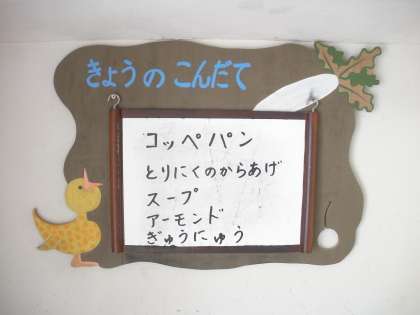 きょうの こんだて
コッペパン
とりにくのからあげ
スープ
アーモンド
ぎゅうにゅう